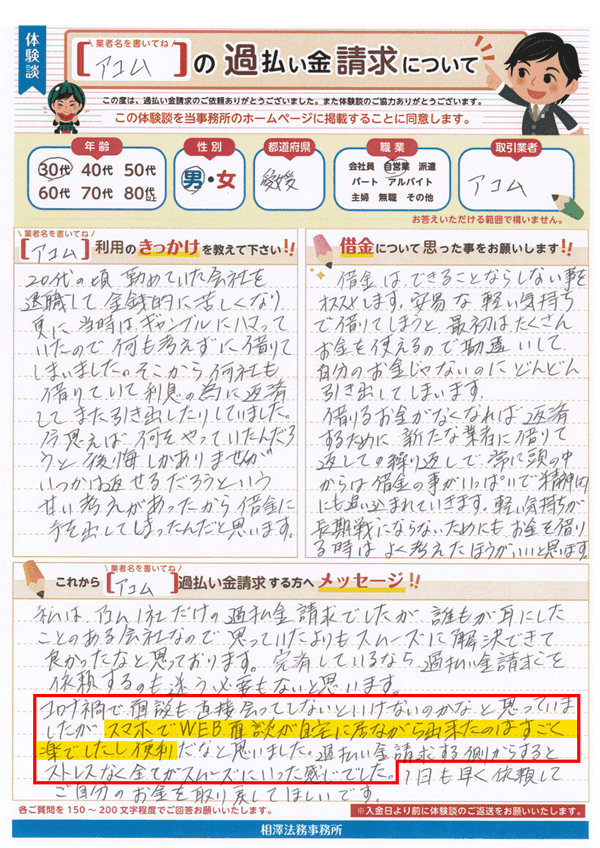 体験談
業者名を書いてね
[アコム]の過払い金請求について
この度は、過払い金請求のご依頼ありがとうございました。また体験談のご協力ありがとうございます。
この体験談を当事務所のホームページに掲載することに同意します。
年齢
30代 40代 50代
60代 70代 80代以上
性別
男・女
都道府県
愛媛
職業
会社員 自営業 派遣
パート アルバイト
主婦 無職 その他
取引業者
アコム
お答えいただける範囲で構いません。
業者名を書いてね
[アコム]利用のきっかけを教えて下さい!!
20代の頃 勤めていた会社を
退職して 金銭的に苦しくなり
更に 当時は、ギャンブルにハマって
いたので 何も考えずに借りて
しまいました。そこから 何社も
借りていて 利息の為に返済
して また引き出したりしていました。
今思えば 何をやっていたんだろ
うと 後悔しかありませんが
いつかは返せるだろうという
甘い考えがあったから 借金に
手を出してしまったんだと思います。
借金について思った事をお願いします!!
借金は、できることならしない事を
オススメします。安易な 軽い気持ち
で借りてしまうと、最初はたくさん
お金を使えるので勘違いして、
自分のお金じゃないのにどんどん
引き出してしまいます。
借りるお金がなくなれば 返済
するために 新たな業者に借りて
返しての繰り返しで、常に頭の中
からは借金の事がいっぱいで精神的
にも追い込まれていきます。軽い気持ちが
長期戦にならないためにも、お金を借り
る時は よく考えたほうがいいと思います
業者名を書いてね
これから[アコム]過払い金請求する方へメッセージ!!
私は、アコム1社だけの過払金請求でしたが、誰もが耳にした
ことのある会社なので 思っていたよりもスムーズに解決できて
良かったなと思っております。完済しているなら、過払い金請求を
依頼するのも迷う必要もないと思います。
コロナ禍で面談も直接会ってしないといけないのかなと思っていま
したが、スマホでWEB面談が自宅に居ながら出来たのはすごく
楽でしたし便利だなと思いました。過払い金請求する側からすると
ストレスなく全てがスムーズにいった感じでした。1日も早く依頼して
ご自分のお金を取り戻してほしいです。
各ご質問を150～200文字程度でご回答お願いいたします。
※入金日より前に体験談のご返送をお願いいたします。
相澤法務事務所